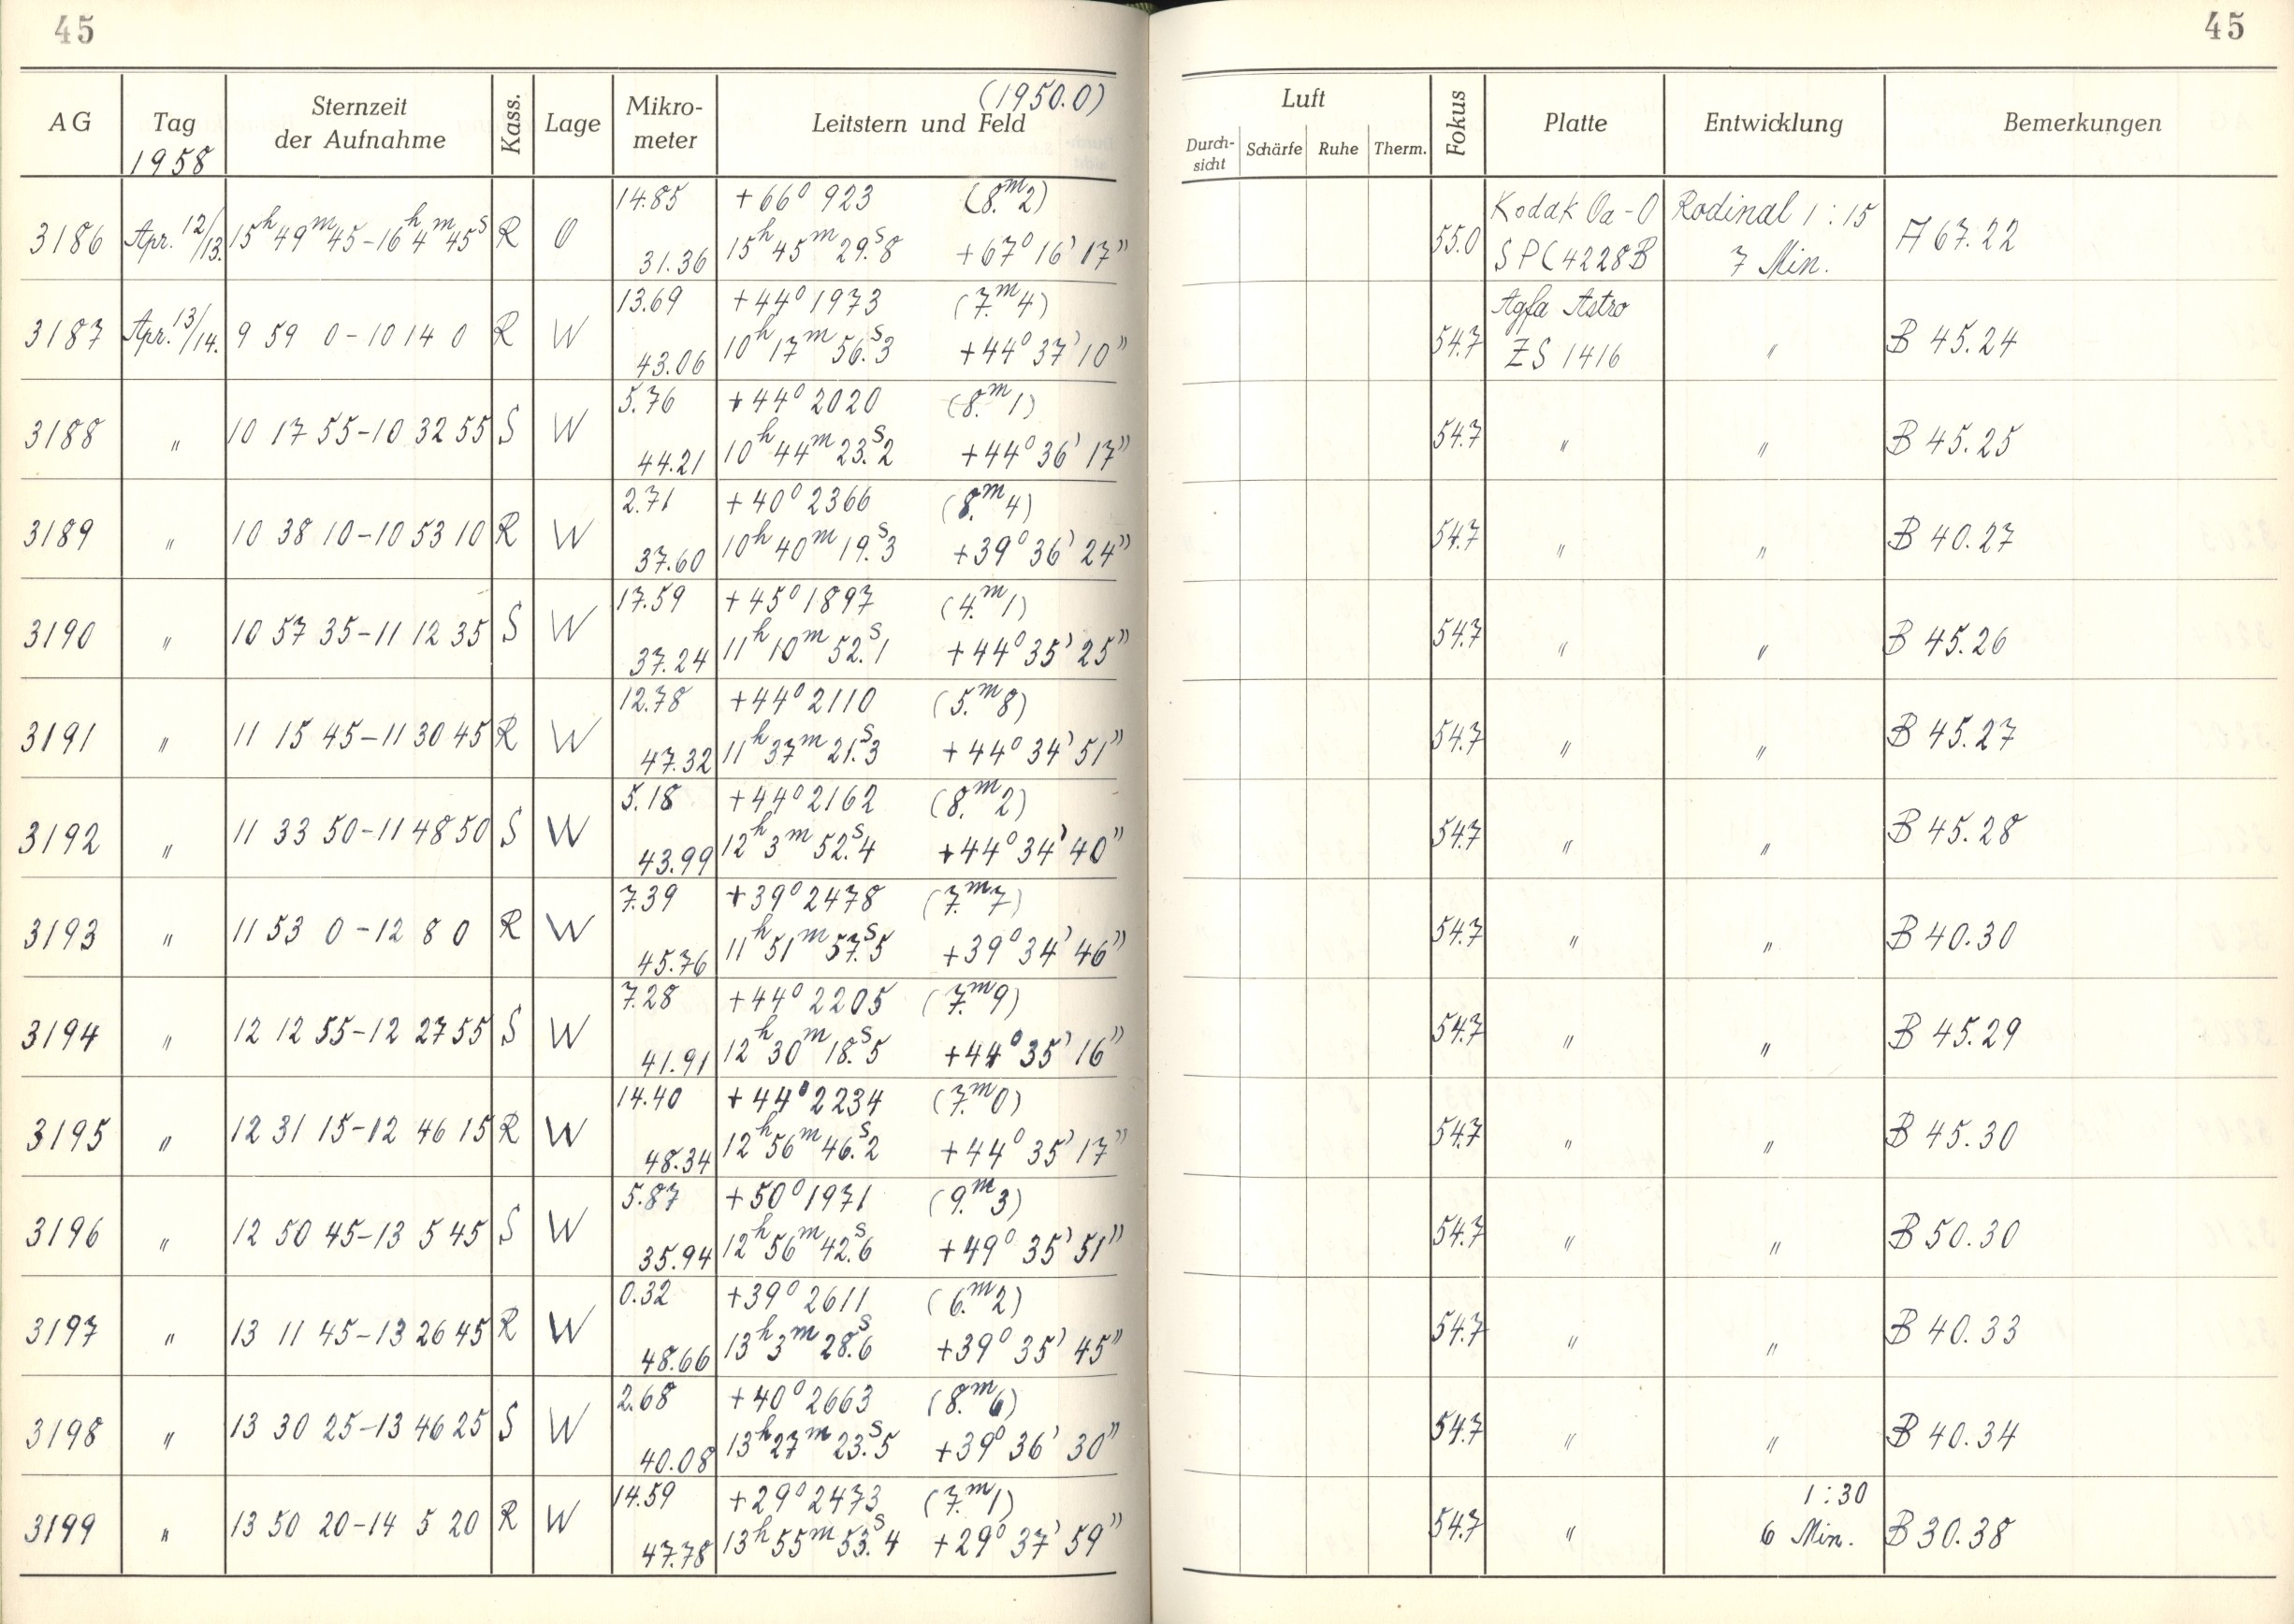 45
45
(1950.0)
AG Tag Sternzeit der Aufnahme Kass. Lage Mikro-meter Leitstern und Feld
1958
Luft
Durch-sicht Schärfe Ruhe Therm. Fokus Platte Entwicklung Bemerkungen
14.85 +66° 923 (8.ᵐ2) Kodak Oa-O Rodinal 1:15
3186 Apr. 12/13. 15ʰ 49ᵐ 45-16ʰ 4ᵐ 45ˢ R O 55.0 A 67.22
31.36 15ʰ 45ᵐ 29.ˢ8 +67° 16' 17" SPC4228B 7 Min.
13.69 +44° 1973 (7.ᵐ4) Agfa Astro
3187 Apr. 13/14. 9 59 0-10 14 0 R W 54.7 " B 45.24
43.06 10ʰ 17ᵐ 56.ˢ3 +44° 37' 10" ZS 1416
5.76 +44° 2020 (8.ᵐ1)
3188 " 10 17 55-10 32 55 S W 54.7 " " B 45.25
44.21 10ʰ 44ᵐ 23.ˢ2 +44° 36' 17"
2.71 +40° 2366 (8.ᵐ4)
3189 " 10 38 10-10 53 10 R W 54.7 " " B 40.27
37.60 10ʰ 40ᵐ 19.ˢ3 +39° 36' 24"
17.59 +45° 1897 (4.ᵐ1)
3190 " 10 57 35-11 12 35 S W 54.7 " " B 45.26
37.24 11ʰ 10ᵐ 52.ˢ1 +44° 35' 25"
12.78 +44° 2110 (5.ᵐ8)
3191 " 11 15 45-11 30 45 R W 54.7 " " B 45.27
47.32 11ʰ 37ᵐ 21.ˢ3 +44° 34' 51"
5.18 +44° 2162 (8.ᵐ2)
3192 " 11 33 50-11 48 50 S W 54.7 " " B 45.28
43.99 12ʰ 3ᵐ 52.ˢ4 +44° 34' 40"
7.39 +39° 2478 (7.ᵐ7)
3193 " 11 53 0-12 8 0 R W 54.7 " " B 40.30
45.76 11ʰ 51ᵐ 57.ˢ5 +39° 34' 46"
7.28 +44° 2205 (7.ᵐ9)
3194 " 12 12 55-12 27 55 S W 54.7 " " B 45.29
41.91 12ʰ 30ᵐ 18.ˢ5 +44° 35' 16"
14.40 +44° 2234 (7.ᵐ0)
3195 " 12 31 15-12 46 15 R W 54.7 " " B 45.30
48.34 12ʰ 56ᵐ 46.ˢ2 +44° 35' 17"
5.87 +50° 1971 (9.ᵐ3)
3196 " 12 50 45-13 5 45 S W 54.7 " " B 50.30
35.94 12ʰ 56ᵐ 42.ˢ6 +49° 35' 51"
0.32 +39° 2611 (6.ᵐ2)
3197 " 13 11 45-13 26 45 R W 54.7 " " B 40.33
48.66 13ʰ 3ᵐ 28.ˢ6 +39° 35' 45"
2.68 +40° 2663 (8.ᵐ6)
3198 " 13 30 25-13 46 25 S W 54.7 " " B 40.34
40.08 13ʰ 27ᵐ 23.ˢ5 +39° 36' 30"
14.59 +29° 2473 (7.ᵐ1) 1:30
3199 " 13 50 20-14 5 20 R W 54.7 " 6 Min. B 30.38
47.78 13ʰ 55ᵐ 53.ˢ4 +29° 37' 59"